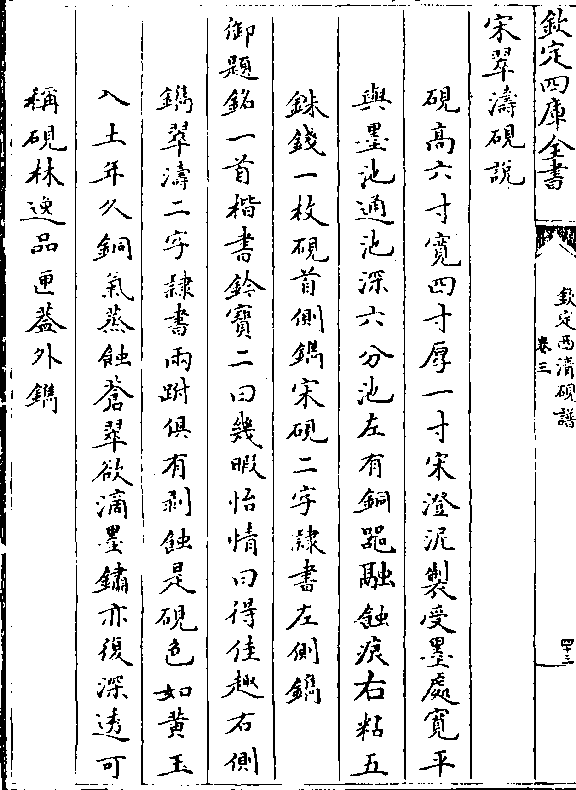 欽定四庫全書
欽定西清硯譜
卷三
四十三
宋翠濤硯說
硯高六寸寬四寸厚一寸宋澄泥製受墨處寬平
與墨池通池深六分池左有銅器融蝕痕右粘五
銖錢一枚硯首側鐫宋硯二字隸書左側鐫
御題銘一首楷書鈐寶二曰幾暇怡情曰得佳趣右側
鐫翠濤二字隸書兩跗俱有剥蝕是硯色如黃玉
入土年久銅氣蒸蝕蒼翠欲滴墨鏽亦復深透可
稱硯林逸品匣葢外鐫